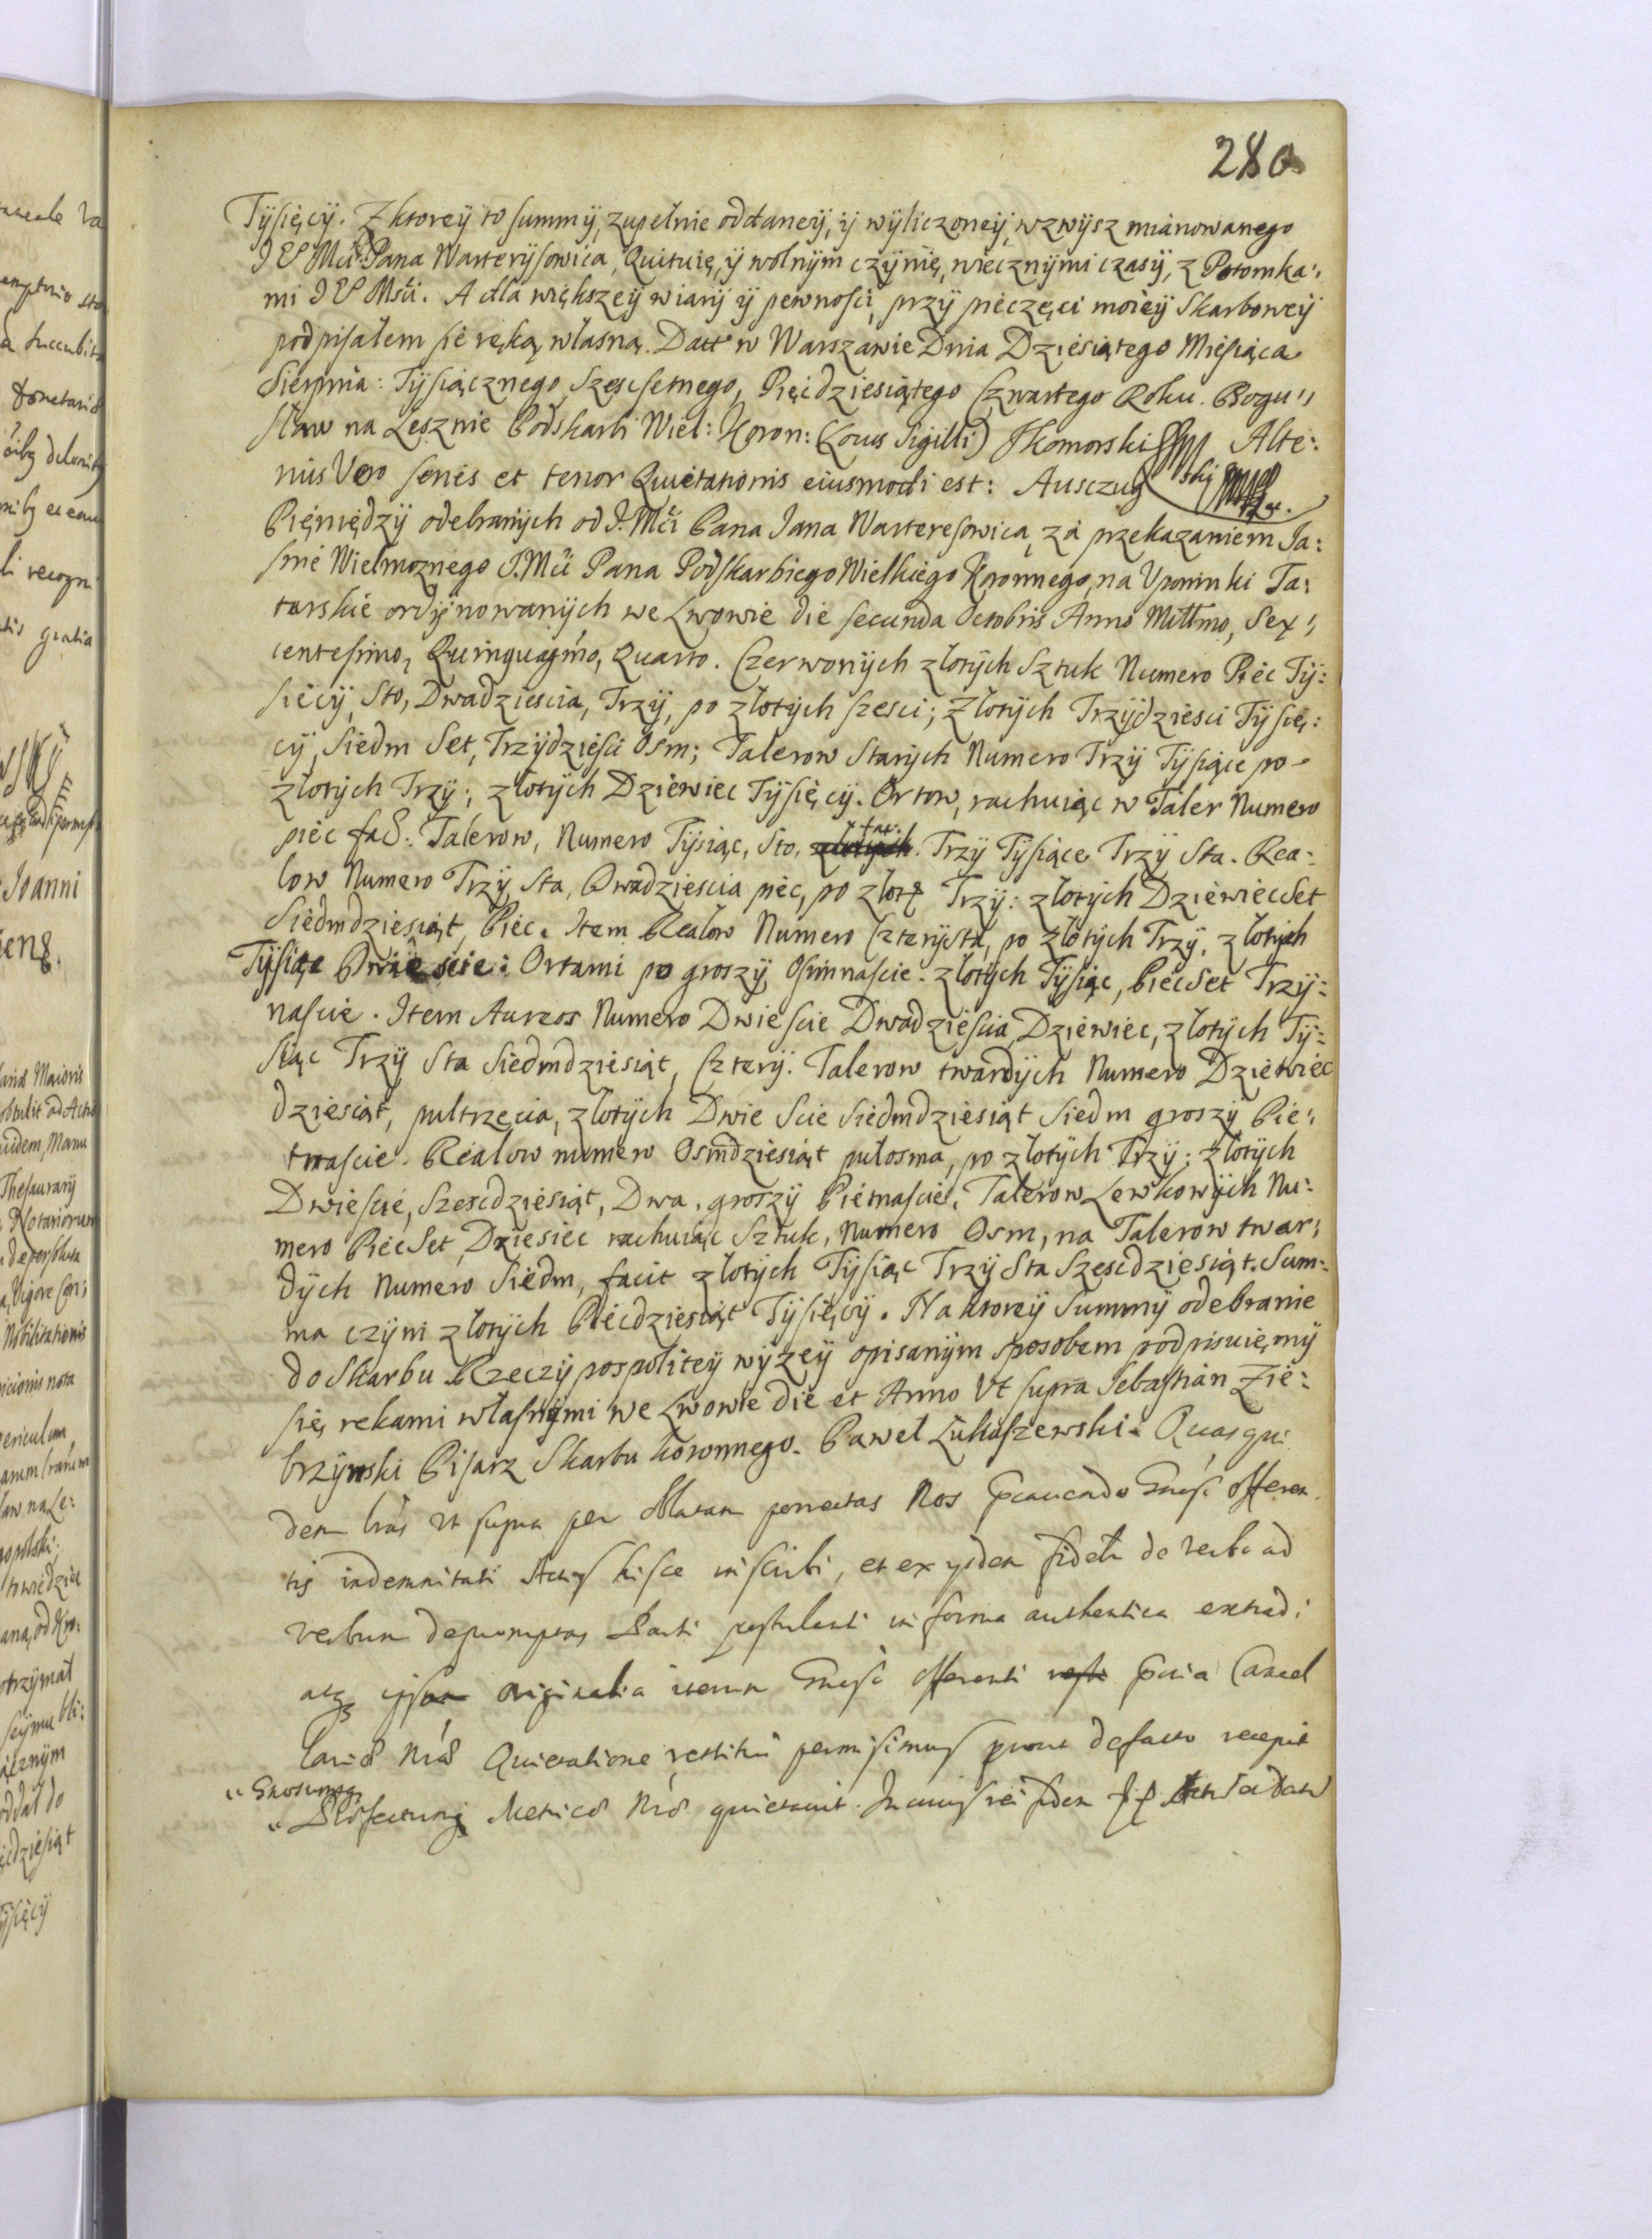 280
Tÿsięcÿ. Z ktoreÿ to summÿ, zupełnie oddaneÿ, ÿ wÿliczoneÿ, wzwÿsz mianowanego
Pana Warterÿsowica, Quituię, ÿ wolnÿm czÿnię, wiecznÿmi czasÿ, z Potomka:
mi JE Msci. A dla większeÿ wiarÿ ÿ pewnosci, przÿ pieczęci moieÿ Skarboweÿ
podpisałem się ręką własną. Datt w Warszawie Dnia Dziesiątego Miesiąca
Sierpnia: Tÿsiącznego, Szescsetnego, Pięcdziesiątego Czwartego Roku. Bogu:
sław na Lesznie Podskarbi Wiel: Koron: (Locus Sigilli) JKomorski Alte:
rius Vero seriés et tenor Quietationis eiusmodi est: Auszug
Pięniędzÿ odebranÿch od J. Mci Pana Jana Warteresowica, za przekazaniem Ja:
snie Wielmoznego J. Mci Pana Podskarbiego Wielkiego Koronnego, na Vpominki Ta:
tarskie ordÿnowanÿch we Lwowie die secunda Octobris Anno Millmo, Sex:
centesimo, Quinquagmo, Quarto. Czerwonÿch złotÿch Sztuk Numero Piéc Tÿ:
sięcÿ, Sto, Dwadziescia, Trzÿ, po złotÿch szesci; Złotÿch Trzÿdziesci Tÿsię:
cÿ, Siedm Set, Trzÿdziesci Osm; Talerow Starÿch Numero Trzÿ Tÿsiące po
złotÿch Trzÿ; złotÿch Dziewiec Tÿsięcÿ. Ortow, rachuiąc w Taler Numero
piéc Talerow, Numero Tÿsiąc, Sto, złotÿch Trzÿ Tÿsiące Trzÿ Sta. Rea:
low Numero Trzÿ Sta, Dwadziescia piéc, po złot Trzÿ: złotÿch Dziewiécset
Siedmdziesiąt, Piéc. Item Realow Numero Czterÿsta, po złotÿch Trzÿ, złotÿch
Tÿsiąc Dwie scie: Ortami po groszÿ Osimnascie. złotÿch Tÿsiąc, Piécset Trzÿ:
nascie. Item Aureos Numero Dwie scie Dwadziescia Dziewiéc, złotÿch Tÿ:
siąc Trzÿ Sta Siedmdziesiąt, Czterÿ. Talerow twardÿch Numero Dziewiéc
dziesiąt, pultrzecia, złotÿch Dwie Scie Siedmdziesiąt Siedm groszÿ Pie:
tnascie. Realow numero Osmdziesiąt pulosma, po złotÿch Trzÿ: złotÿch
Dwiescie, Szescdziesiąt, Dwa, groszÿ Piétnascie. Talerow Lewkowÿch Nu:
mero Piécset, Dziesiéc rachuiąc Sztuk, Numero Osm, na Talerow twar:
dÿch Numero Siedm, facit złotÿch Tÿsiąc Trzÿ Sta Szescdziesiąt. Sum:
ma czÿni złotÿch Piécdziesiąt Tÿsięcÿ. Na ktoreÿ Summÿ odebranie
do Skarbu Rzeczÿ pospoliteÿ wÿzeÿ opisanÿm sposobem podpisuiemÿ
się rekami własnÿmi we Lwowie die et Anno Vt supra Sebastian Zie:
brzÿnski Pisarz Skarbu koronnego. Paweł Łukaszewski. Quas qui
dem lrás vt supra per oblatam porrectas Nos offeren
tis indemnitati Actis hisce inscribi, et ex ÿsdem fideli de verbo ad
verbum depromptas Parti postulanti in forma authentica extradi
atq originalia iterum offerenti Cancel
lariæ nræ Quietatione restitui permisimus prout de facto recepit
Metricæ nræ quietavit. In cuius rei fidem